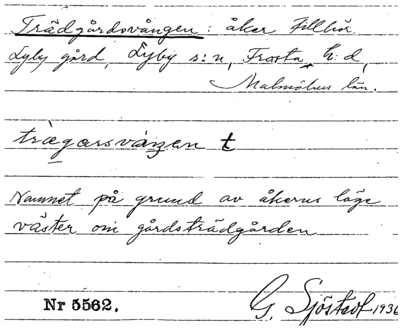 Trädgårdsvången: åker tillhör
Lyby gård, Lyby s:n, Frosta h:d,
Malmöhus län.
trægarsvåŋen t
Namnet på grund av åkerns läge
väster om gårdsträdgården
Nr 5562.
G. Sjöstedt 1936